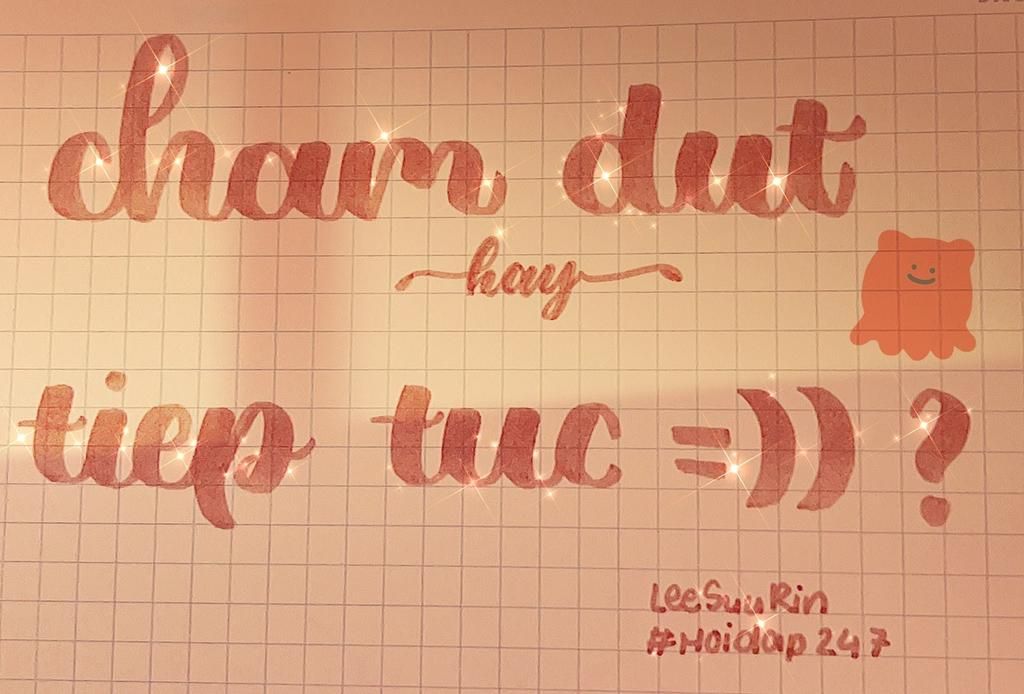 cham dut
hay
tiep tuc =)) ?
LeeSuuRin
#Hoidap247